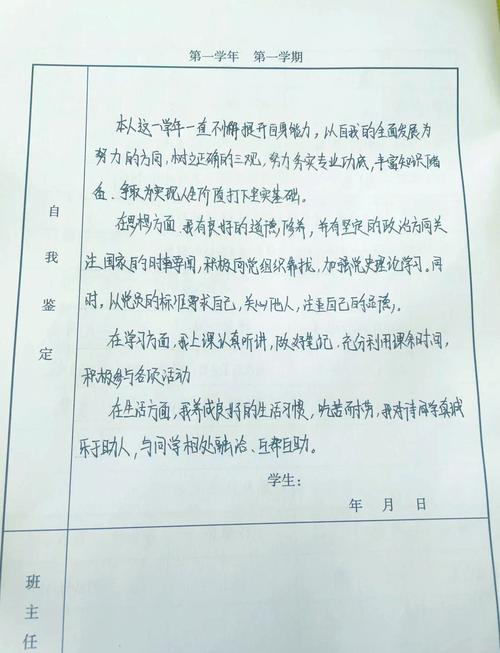 第一学年 第一学期
自我鉴定
本人这一学年一直不懈提升自身能力，以自我的全面发展为
努力的方向，树立正确的三观，努力务实专业功底，丰富知识储
备、争取为实现人生阶段打下坚实基础。
在思想方面，我有良好的道德修养，并有坚定的政治方向关
注国家的时事要闻，积极向党组织靠拢，加强党史理论学习。同
时，以党员的标准要求自己，关心他人，注重自己的品德，
在学习方面，我上课认真听讲，做好笔记，充分利用课余时间，
积极参与各项活动
在生活方面，我养成良好的生活习惯，吃苦而耐劳，我对待同学真诚
乐于助人，与同学相处融洽、互帮互助。
学生：
年 月 日
班主任